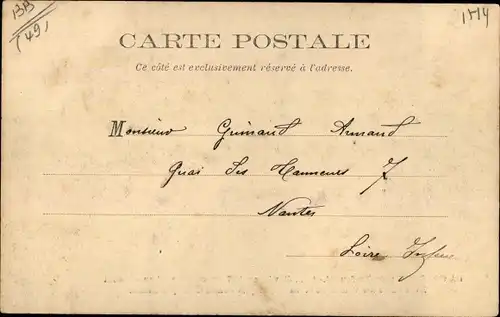 BB
(49)
1514
CARTE POSTALE
Ce côté est exclusivement réservé à l'adresse.
Monsieur Grimaud Armand
Quai des Tanneurs 7
Nantes
Loire Infre